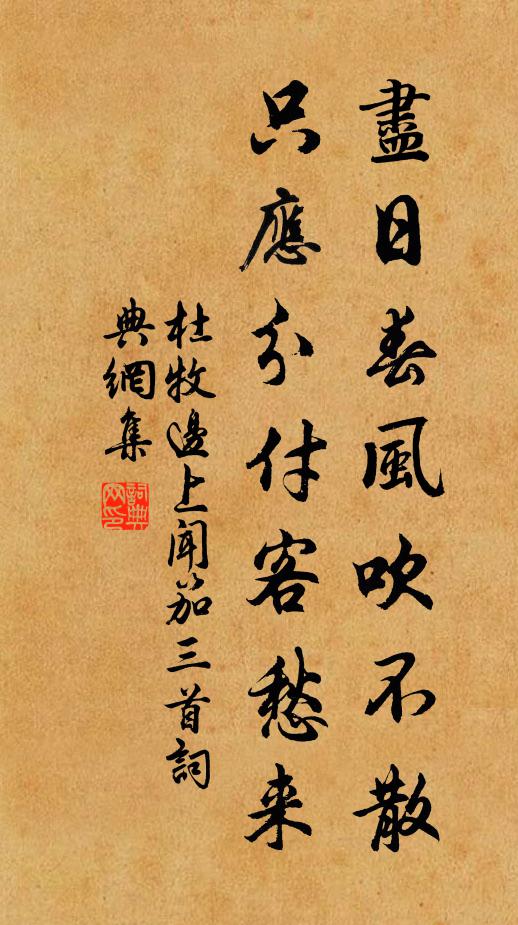 盡日春風吹不散
只應分付客愁来
杜牧邊上聞笳三首詞
典網集
詞典
网印